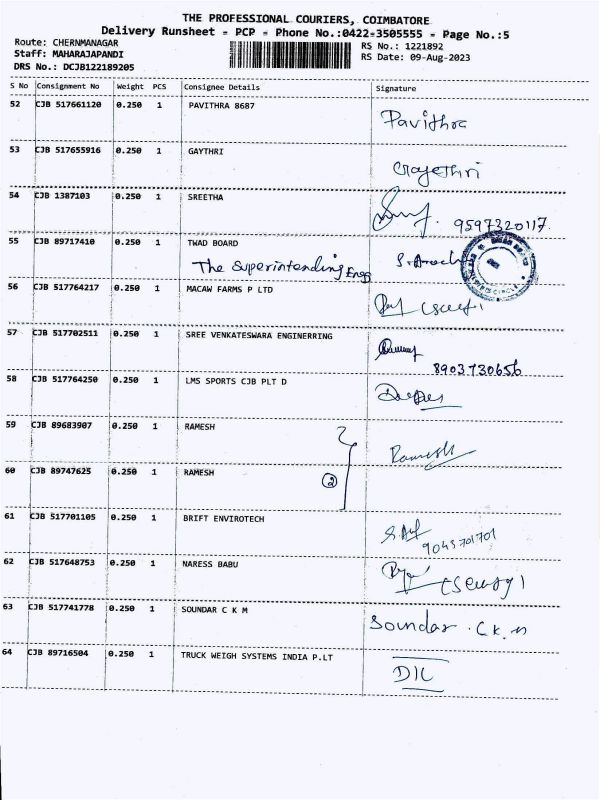 THE PROFESSIONAL COURIERS, COIMBATORE
Delivery Runsheet - PCP - Phone No.:0422-3505555 - Page No.:5
Route: CHERNMANAGAR
RS No.: 1221892
Staff: MAHARAJAPANDI
RS Date: 09-Aug-2023
DRS No.: DCJB122189205
S No Consignment No Weight PCS Consignee Details Signature
52 CJB 517661120 0.250 1 PAVITHRA 8687 Pavithra
53 CJB 517655916 0.250 1 GAYTHRI
54 CJB 1387103 0.250 1 SREETHA
9597320117.
55 CJB 89717410 0.250 1 TWAD BOARD
The Superintending Engg
56 CJB 517764217 0.250 1 MACAW FARMS P LTD
57 CJB 517702511 0.250 1 SREE VENKATESWARA ENGINERRING
8903730656
58 CJB 517764250 0.250 1 LMS SPORTS CJB PLT D
59 CJB 89683907 0.250 1 RAMESH Ramesh
60 CJB 89747625 0.250 1 RAMESH 2
61 CJB 517701105 0.250 1 BRIFT ENVIROTECH
9043701701
62 CJB 517648753 0.250 1 NARESS BABU
63 CJB 517741778 0.250 1 SOUNDAR C K M Soundar . C K. M
64 CJB 89716504 0.250 1 TRUCK WEIGH SYSTEMS INDIA P.LT